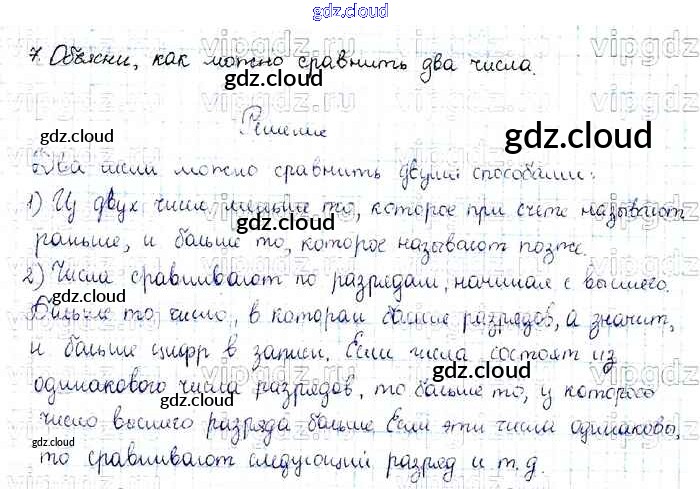 gdz.cloud
7. Объясни, как можно сравнить два числа.
Решение
Два числа можно сравнить двумя способами:
1) Из двух чисел меньше то, которое при счете называют
раньше, и больше то, которое называют позже.
2) Числа сравнивают по разрядам, начиная с высшего.
Больше то число, в котором больше разрядов, а значит,
и больше цифр в записи. Если числа состоят из
одинакового числа разрядов, то больше то, у которого
число высшего разряда больше. Если эти числа одинаковы,
то сравнивают следующий разряд и т.д.
gdz.cloud
gdz.cloud
gdz.cloud
gdz.cloud
gdz.cloud
gdz.cloud
gdz.cloud
gdz.cloud
gdz.cloud
gdz.cloud